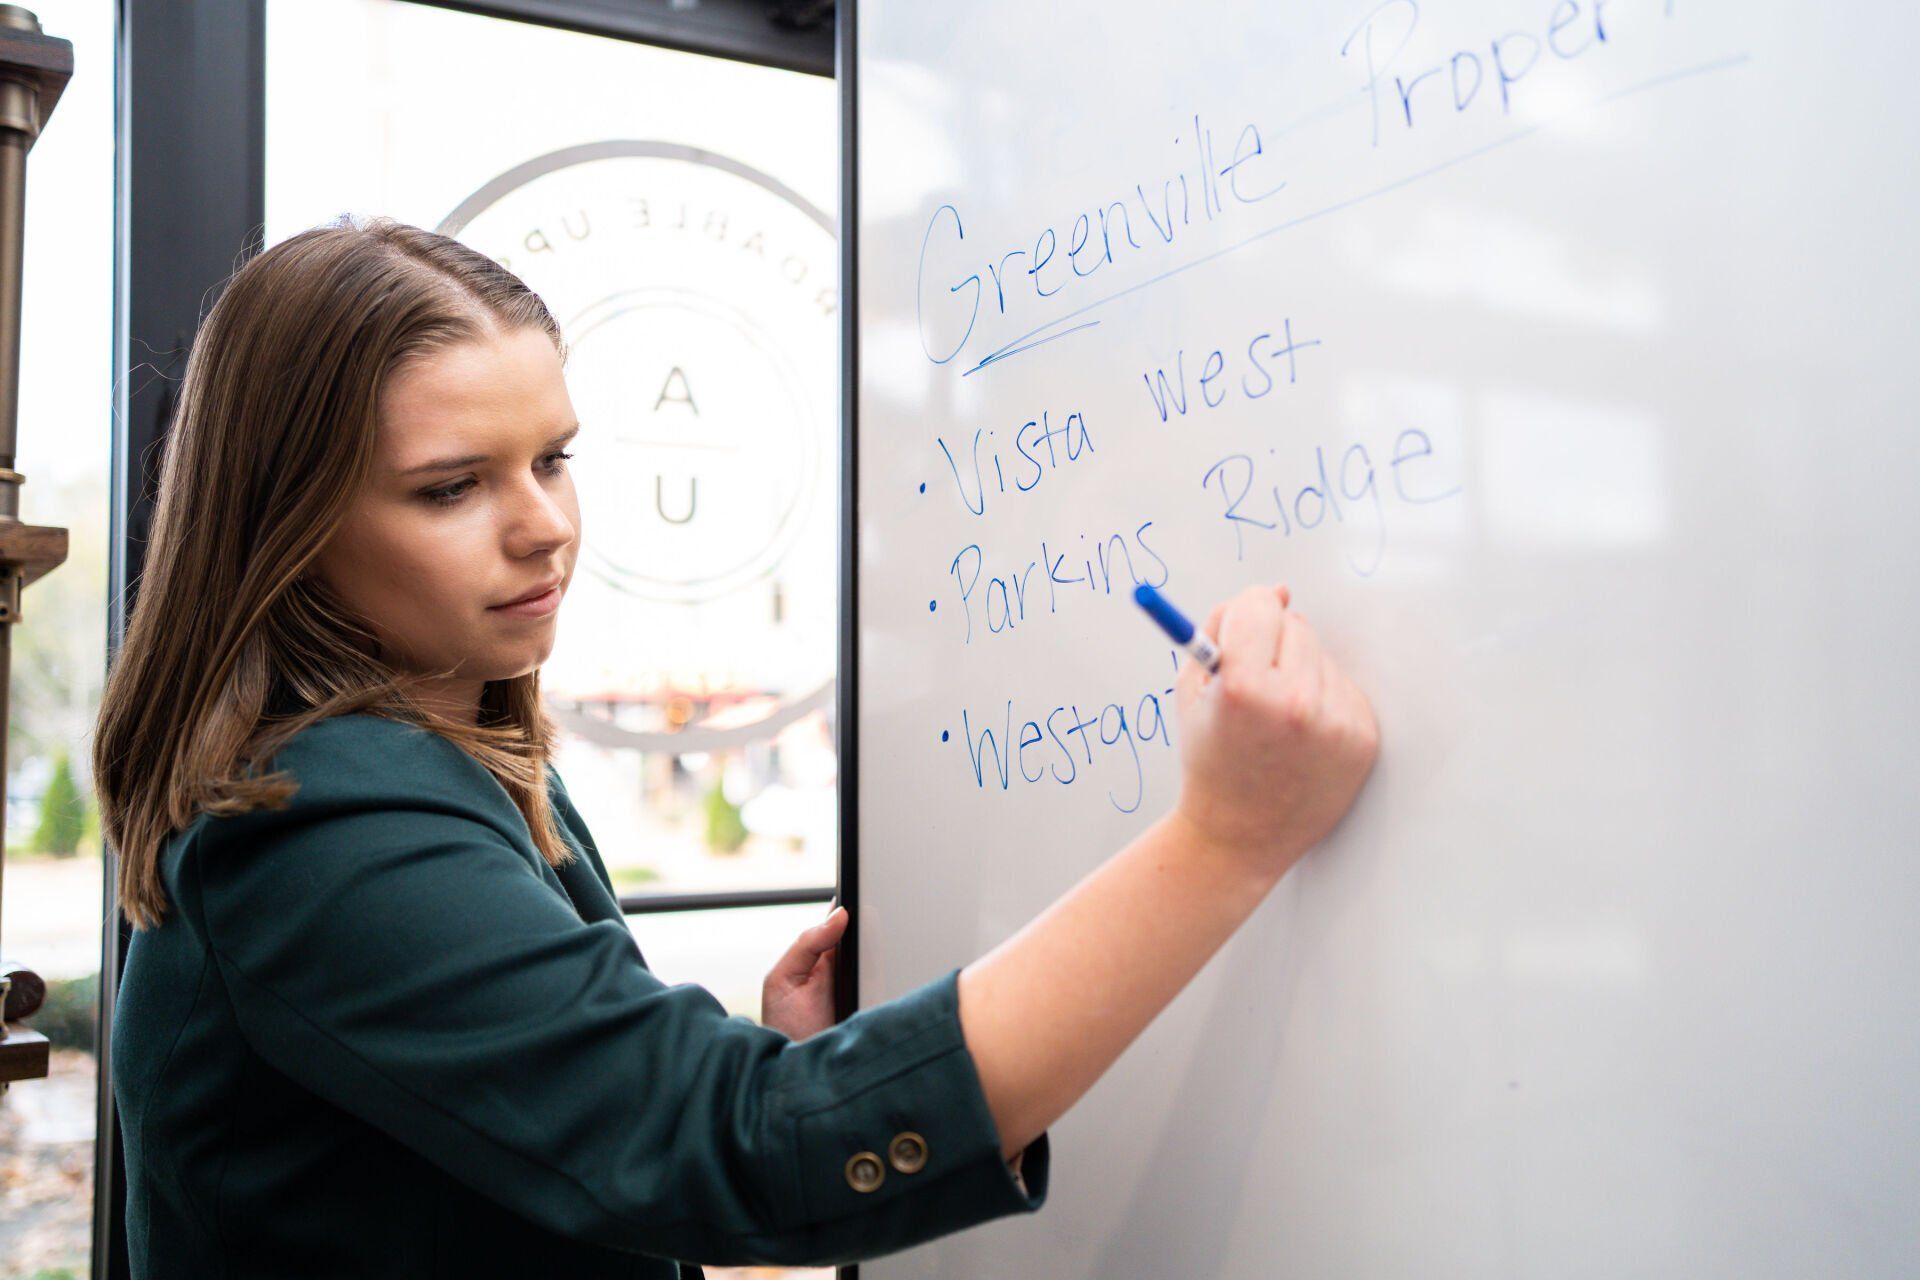 Greenville Proper
• Vista West
• Parkins Ridge
• Westgat
RDABLE UPS
A
U